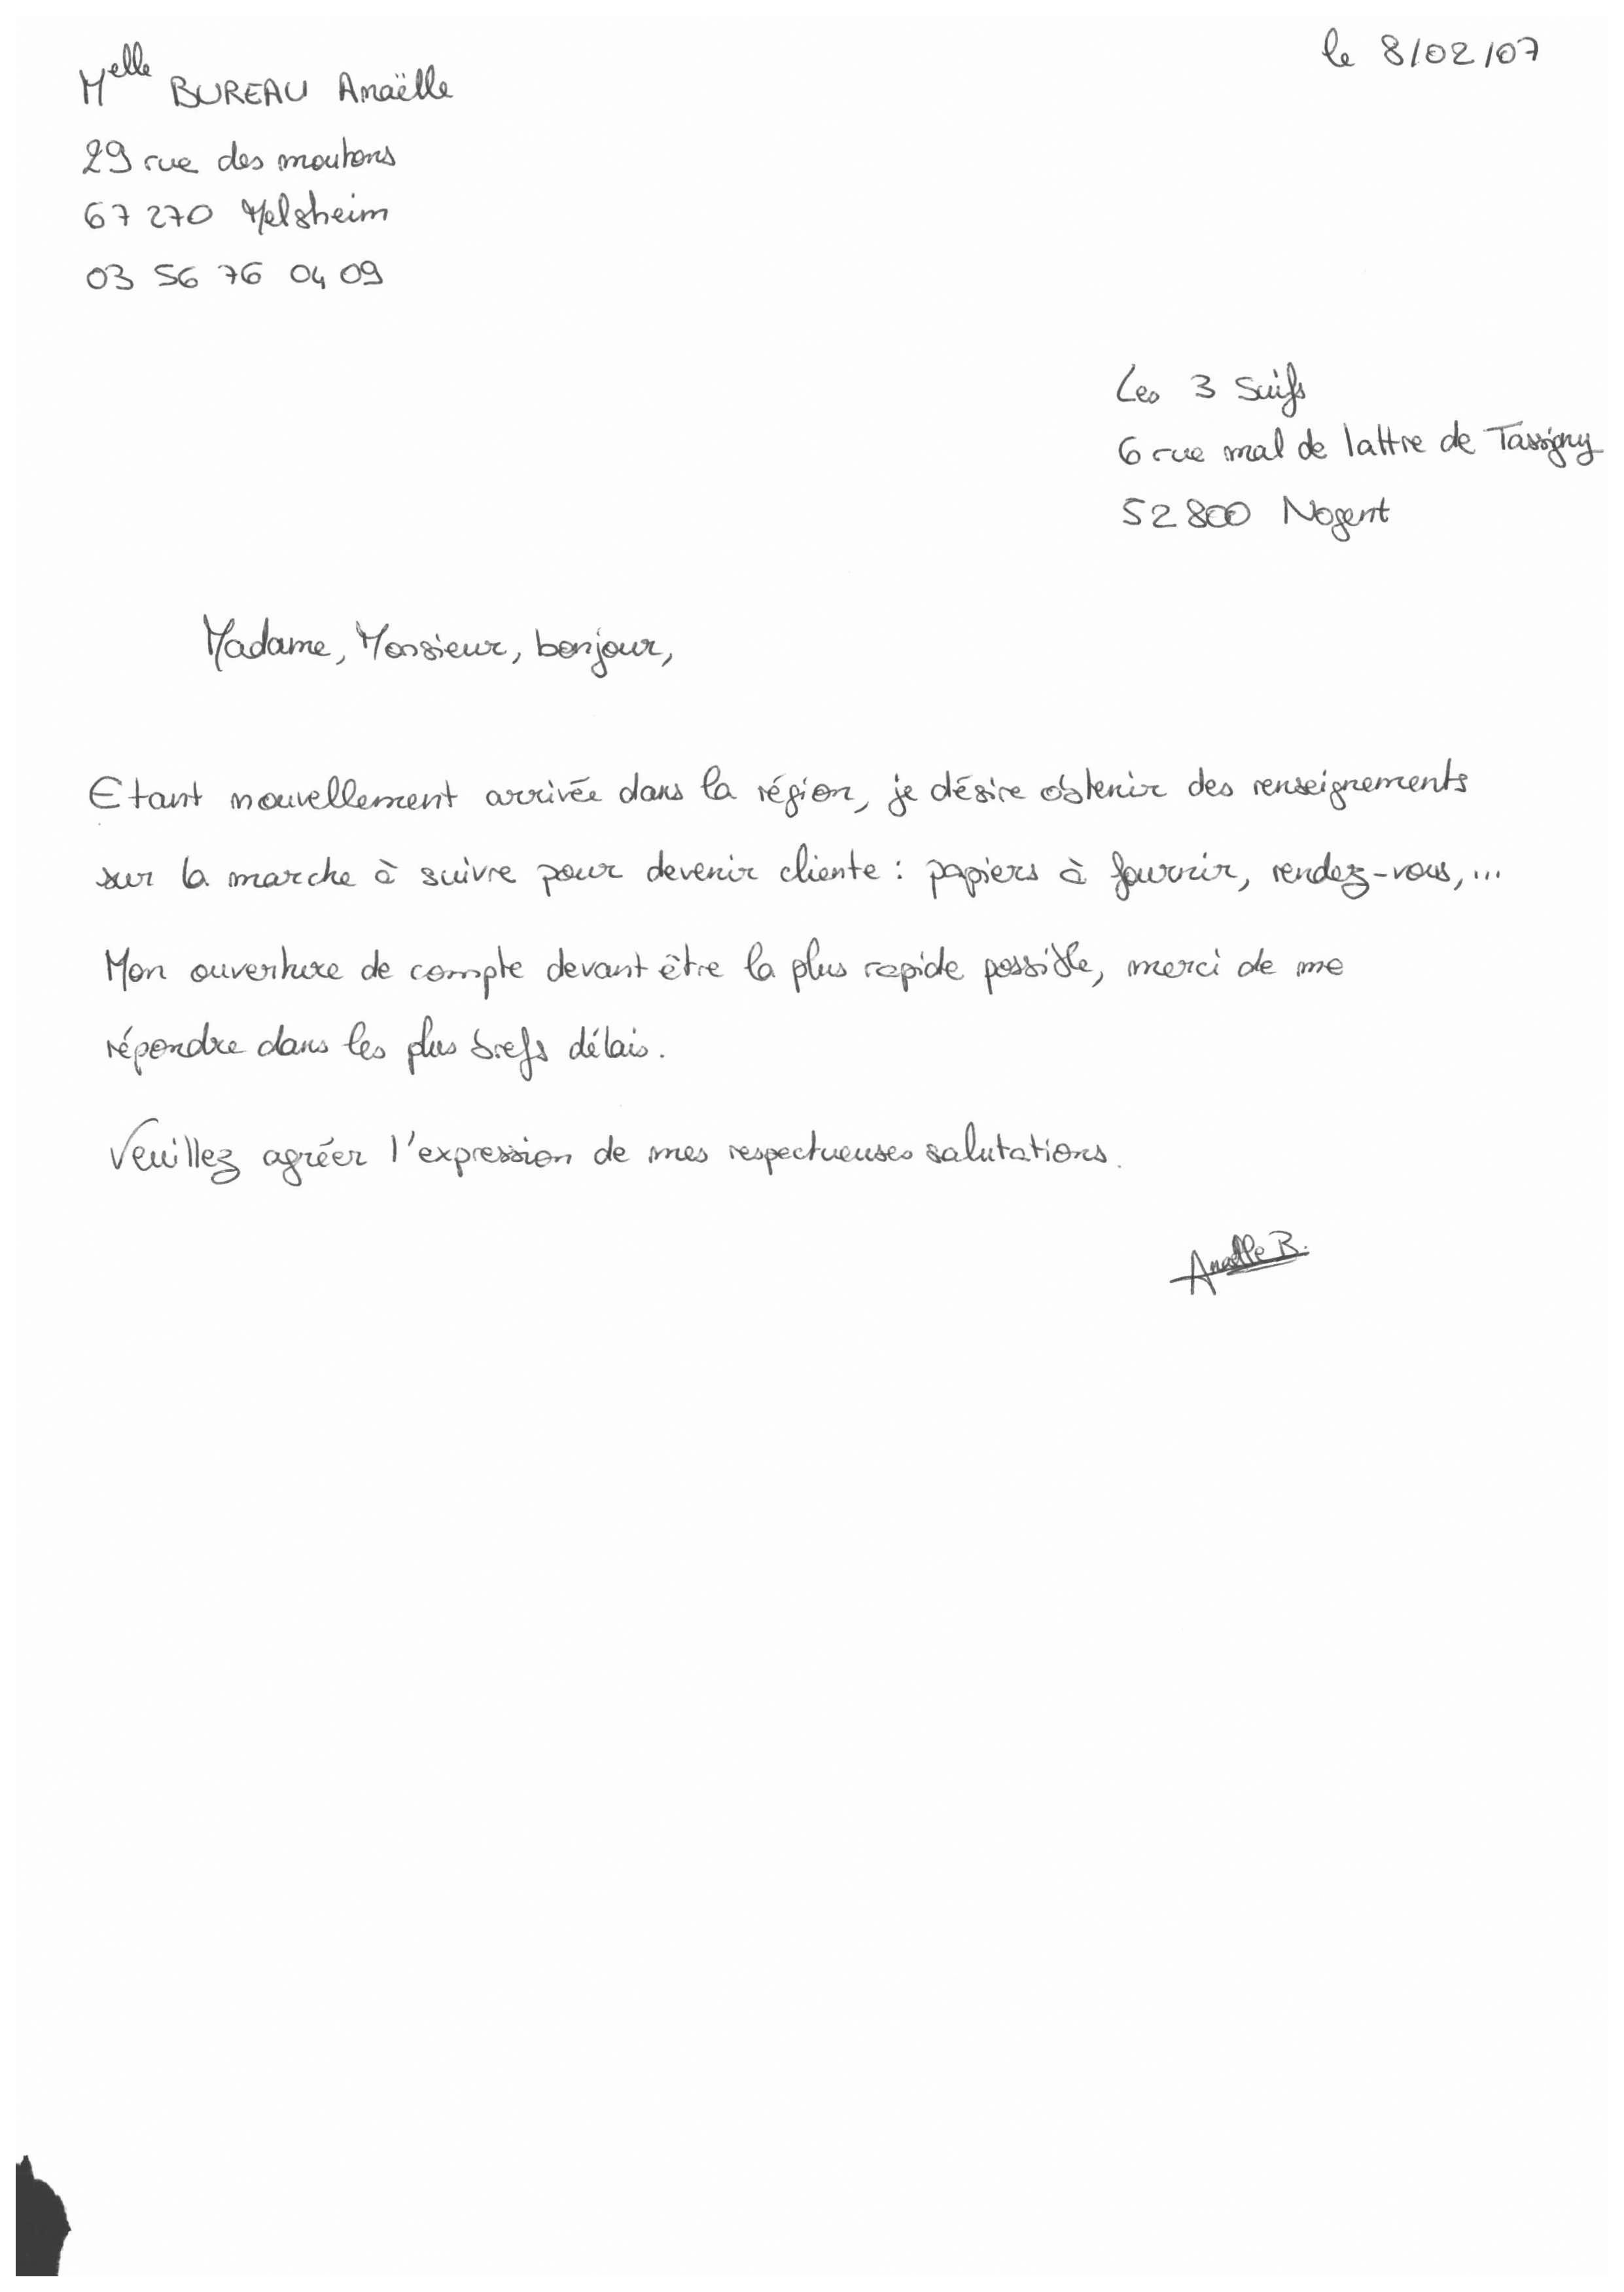 le 8/02/07
Melle BUREAU Anaëlle
29 rue des moutons
67 270 Melsheim
03 56 76 04 09
Les 3 Suifs
6 rue mal de lattre de Tassigny
52 800 Nogent
Madame, Monsieur, bonjour,
Etant nouvellement arrivée dans la région, je désire obtenir des renseignements
sur la marche à suivre pour devenir cliente : papiers à fournir, rendez-vous, ...
Mon ouverture de compte devant être la plus rapide possible, merci de me
répondre dans les plus brefs délais.
Veuillez agréer l'expression de mes respectueuses salutations.
Anaëlle B.